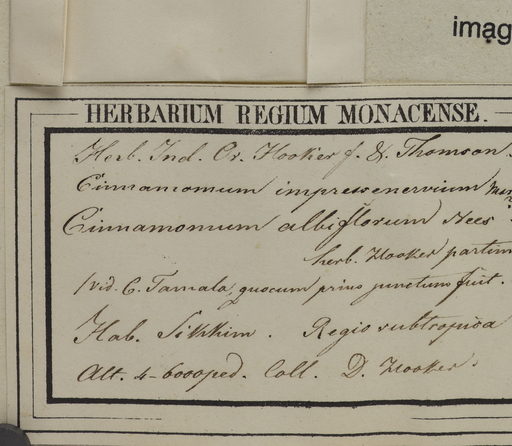 imag
HERBARIUM REGIUM MONACENSE.
Herb. Ind. Or. Hooker f. & Thomson.
Cinnamomum impressenervium
Cinnamomum albiflorum Nees
herb. Hooker partim
(vid. C. Tamala, quocum prius junctum fuit.
Hab. Sikkim. Regio subtropica
Alt. 4-6000ped. Coll. D. Hooker.